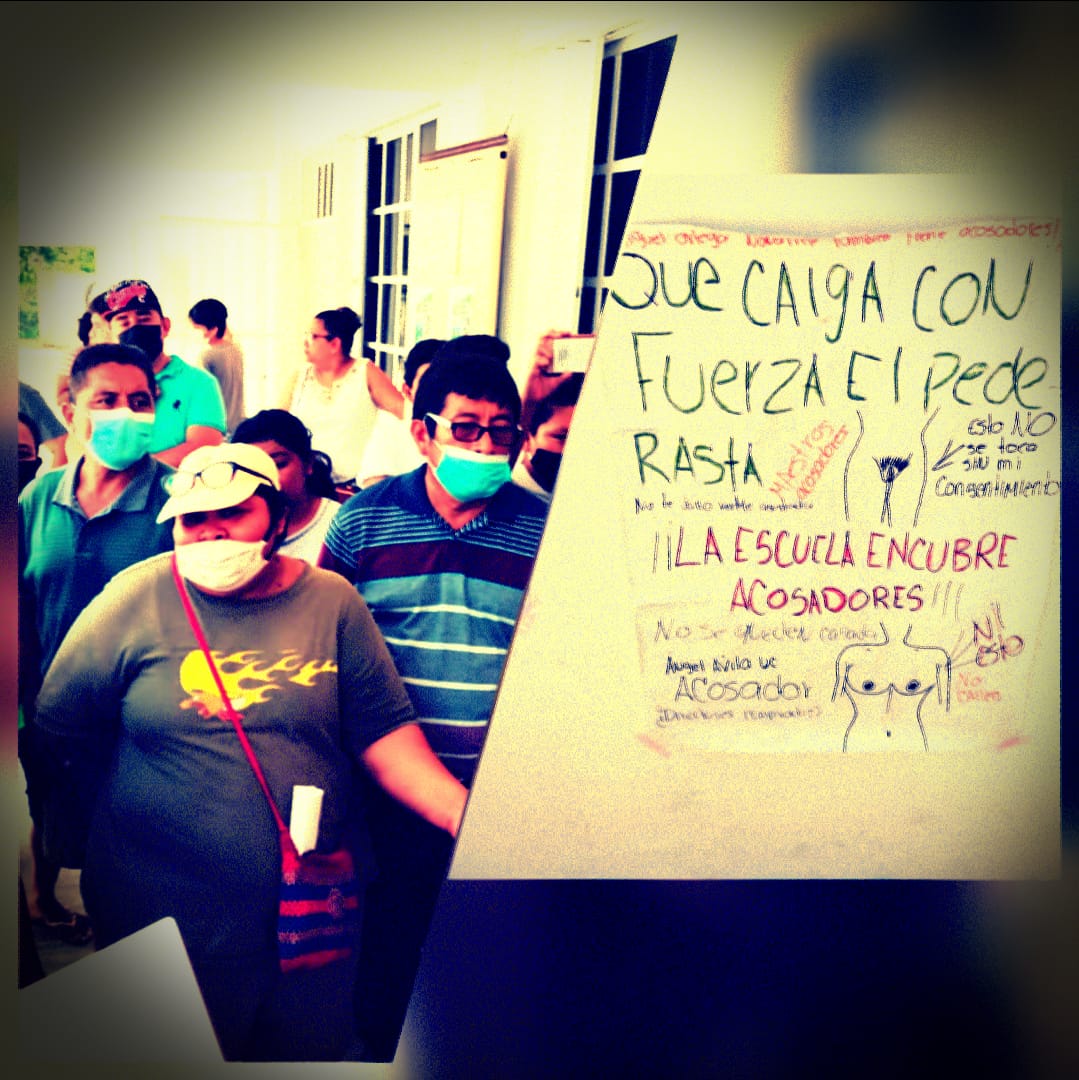 también tiene acosadores!
QUE CAIGA CON
FUERZA El pede
RASTA
MAESTROS
acosadores
esto NO
se toca
sin mi
Consentimiento
¡¡LA ESCUELA ENCUBRE
ACOSADORES!!!
No se queden
NI
esto
Angel Avila uc
Acosador
No